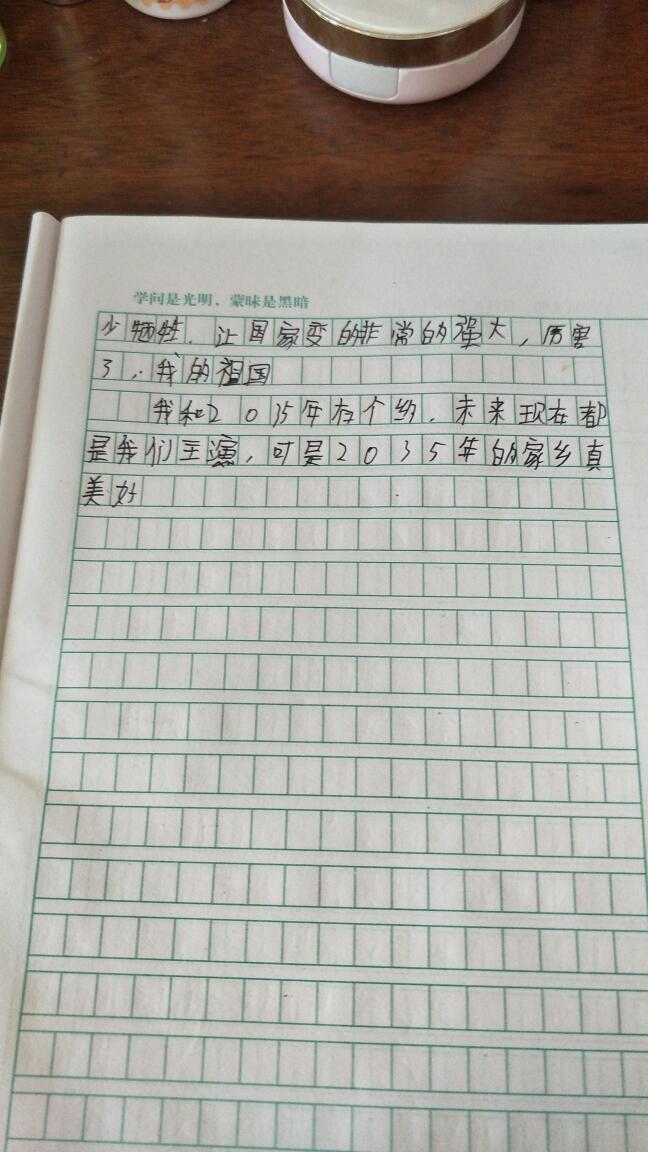 学问是光明，蒙昧是黑暗
少牺牲．让国家变的非常的强大，厉害
了，我的祖国
我和2035年有个约．未来现在都
是我们主演，可是2035年的家乡真
美好